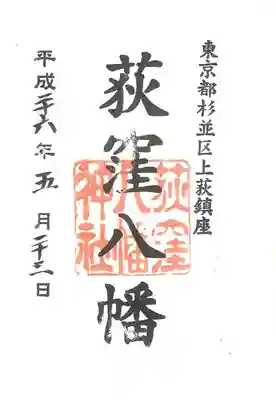 東京都杉並区上荻鎮座
荻窪八幡
荻窪
八幡
神社
平成二十六年五月二十三日